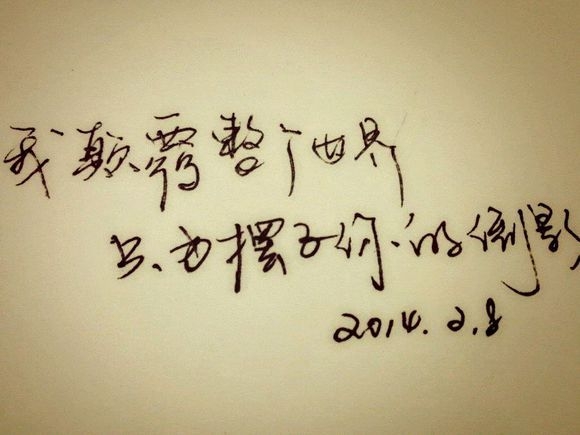 我颠覆整个世界
只为摆正你的倒影
2014.2.8